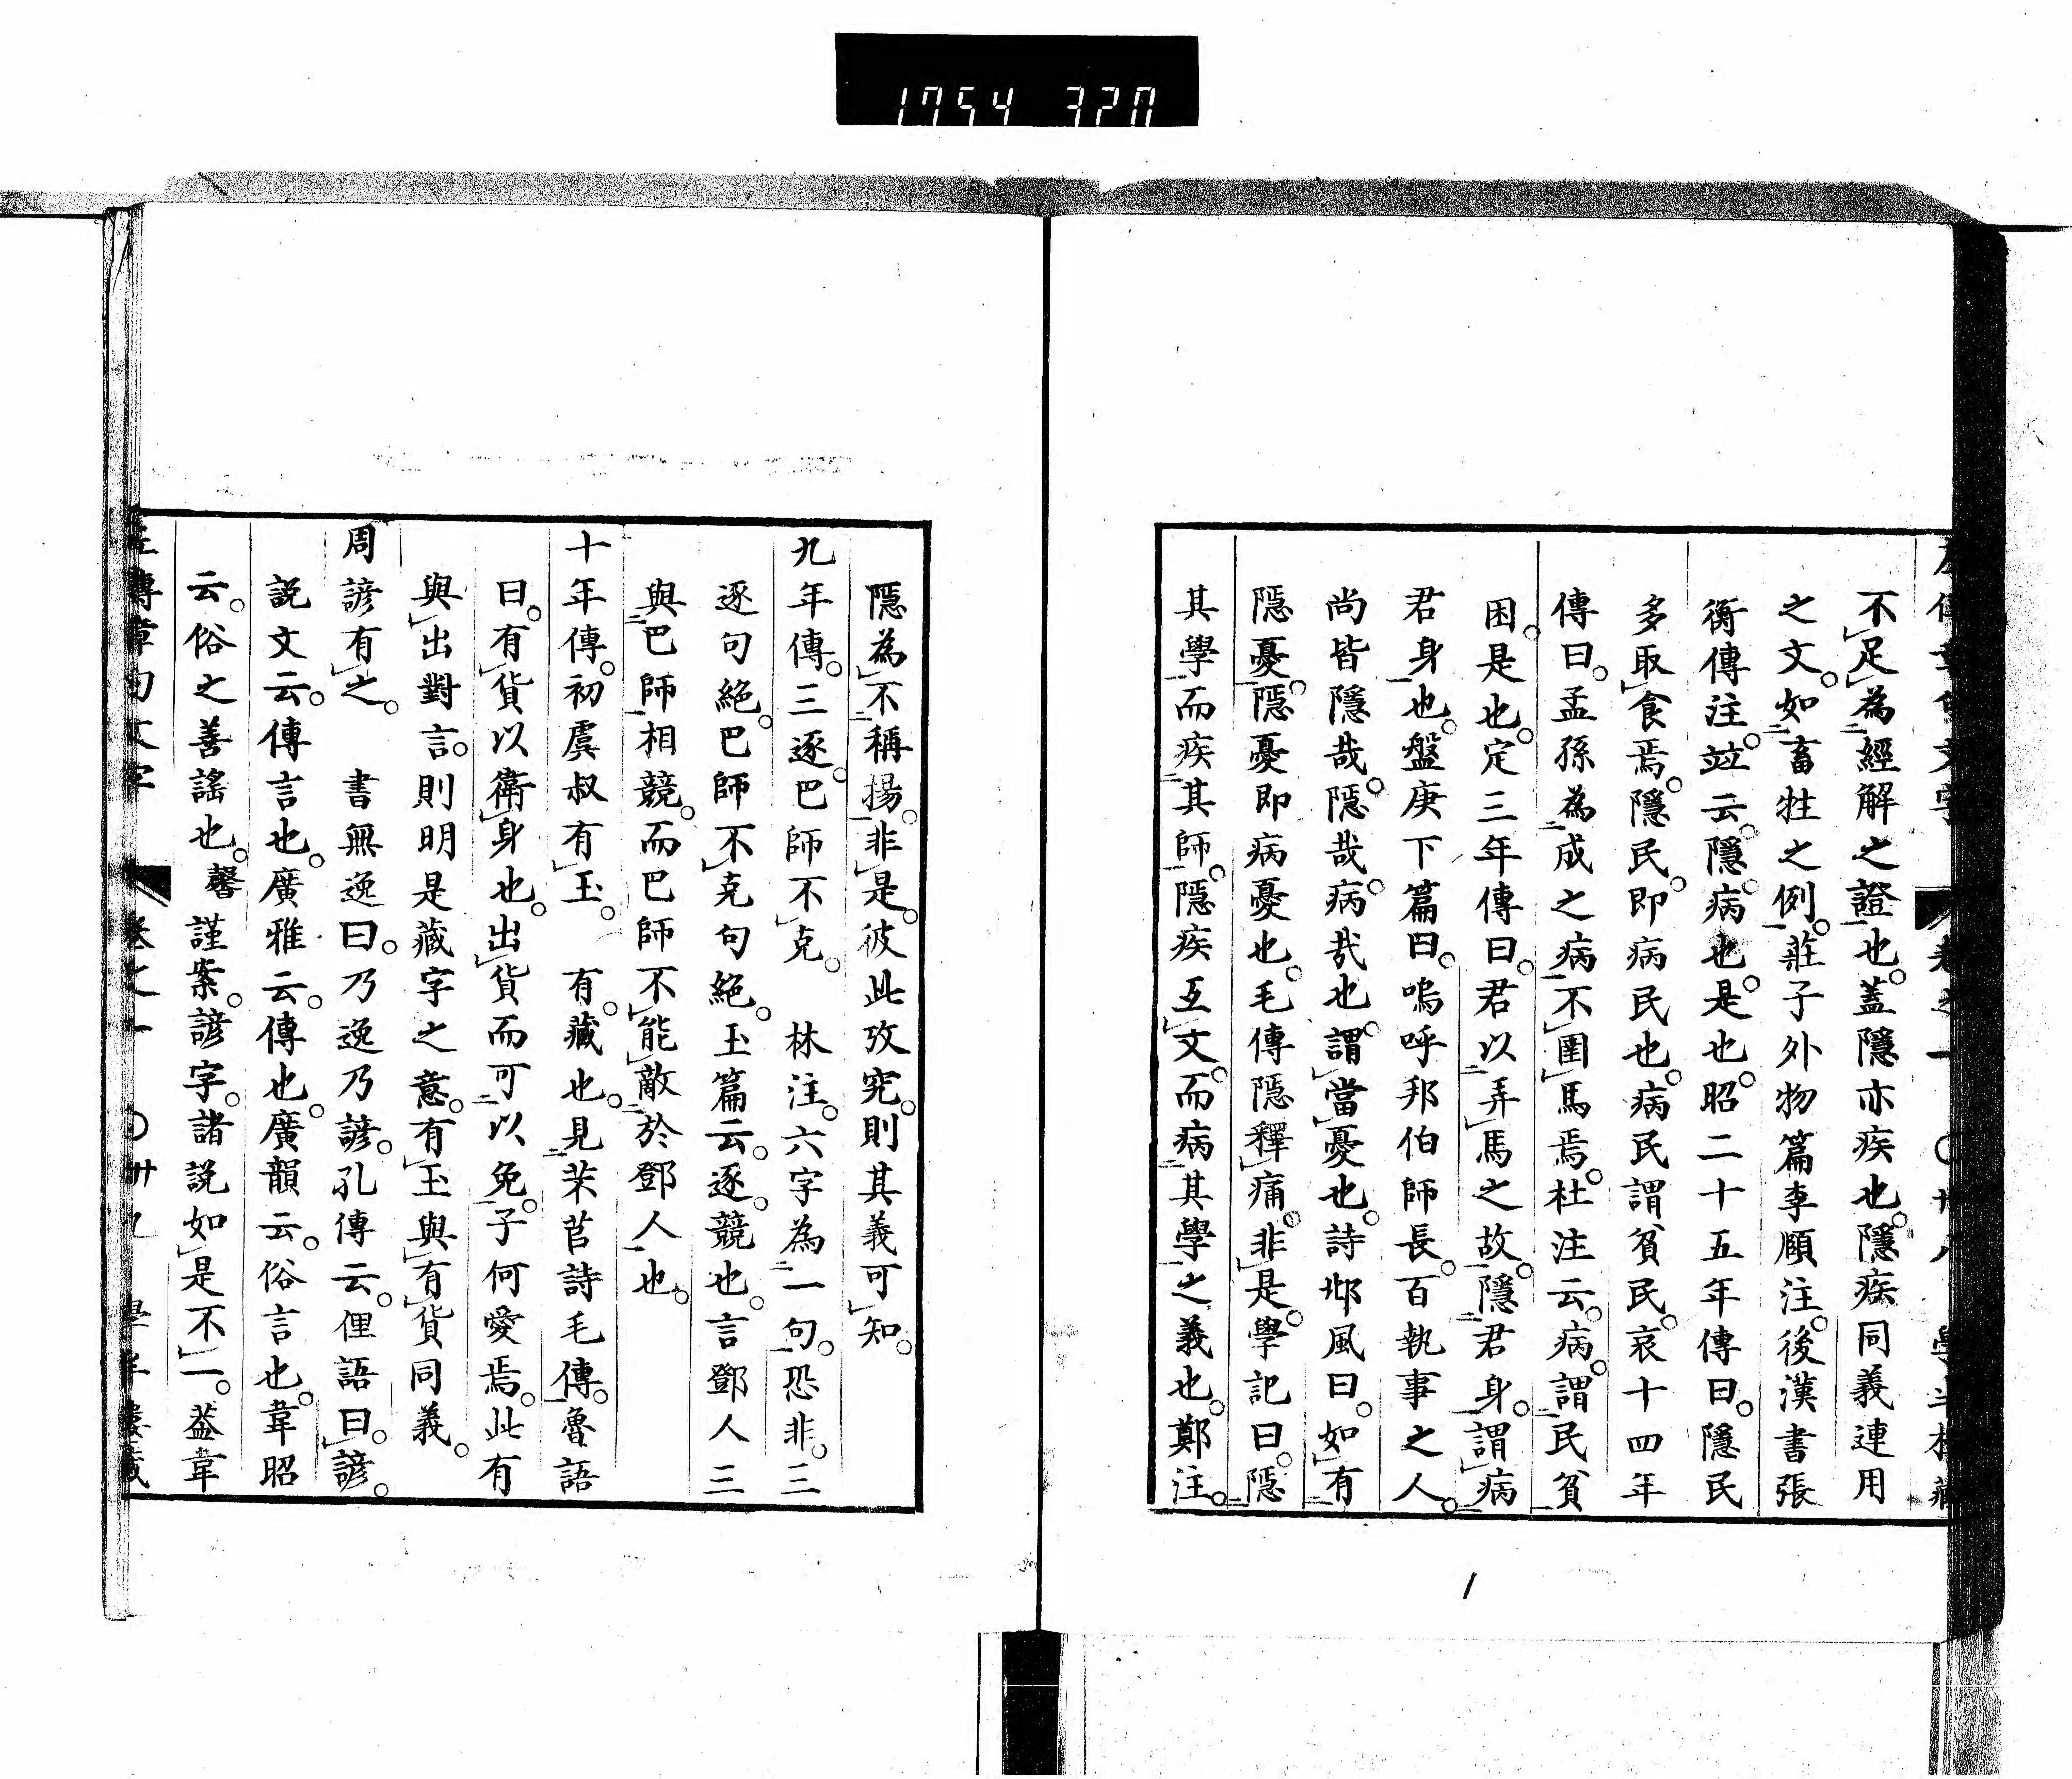 1754 320
不足為經解之證也。蓋隱亦疾也。隱疾同義連用
之文。如畜牲之例。莊子外物篇李頤注。後漢書張
衡傳注。竝云。隱病也。是也。昭二十五年傳曰。隱民
多取食焉。隱民。即病民也。病民謂貧民。哀十四年
傳曰。孟孫為成之病。不圉馬焉。杜注云。病。謂民貧
困。是也。定三年傳曰。君以弄馬之故。隱君身。謂病
君身也。盤庚下篇曰。嗚呼邦伯師長。百執事之人。
尚皆隱哉。隱哉。病哉也。謂當憂也。詩邶風曰。如有
隱憂。隱憂即病憂也。毛傳隱釋痛。非是。學記曰。隱
其學而疾其師。隱疾互文。而病其學之義也。鄭注。
隱為不稱揚。非是。彼此攷究。則其義可知。
九年傳。三逐。巴師不克。 林注。六字為一句。恐非。三
逐句絕。巴師不克句絕。玉篇云。逐。競也。言鄧人三
與巴師相競。而巴師不能敵於鄧人也。
十年傳。初虞叔有玉。 有。藏也。見芣苢詩毛傳。魯語
曰。有貨以衛身也。出貨而可以免。子何愛焉。此有
與出對言。則明是藏字之意。有玉與有貨同義。
周諺有之。 書無逸曰。乃逸乃諺。孔傳云。俚語曰諺。
說文云。傳言也。廣雅云。傳也。廣韻云。俗言也。韋昭
云。俗之善謠也。馨謹案。諺字。諸說如是不一。蓋韋
左傳章句文字 卷之一 〇卅九